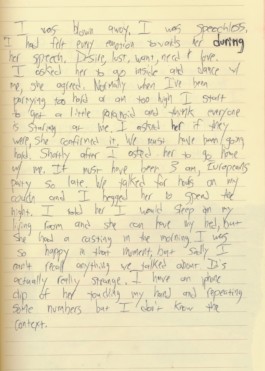 I was blown away. I was speechless.
I had felt every emotion towards her during
her speech. Desire, lust, want, need & love.
I asked her to go inside and dance w/
me, she agreed. Normally when I've been
partying too hard or am too high I start
to get a little paranoid and think everyone
is staring at me. I asked her if they
were, she confirmed it. We must have been going
hard. Shortly after I asked her to go home
w/ me. It must have been 3 am, Europeans
party so late. We talked for hours on my
couch and I begged her to spend the
night. I told her I would sleep in my
living room and she can have my bed, but
she had a casting in the morning. I was
so happy in that moment, but sadly I
can't recall anything we talked about. It's
actually really strange, I have an iphone
clip of her touching my hand and repeating
some numbers but I don't know the
context.